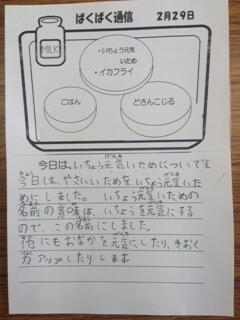 ぱくぱく通信 2月29日
MILK
・いちょう元気
いため
・イカフライ
ごはん
どさんこじる
今日は、いちょう元気いためについてで
今日は、やさいいためを、いちょう元気いた
めにしました。 いちょう元気いための
名前の意味は、いちょうを元気にする
ので、この名前にしました。
他にもおなかを元気にしたり、きおく
力アップしたりしま